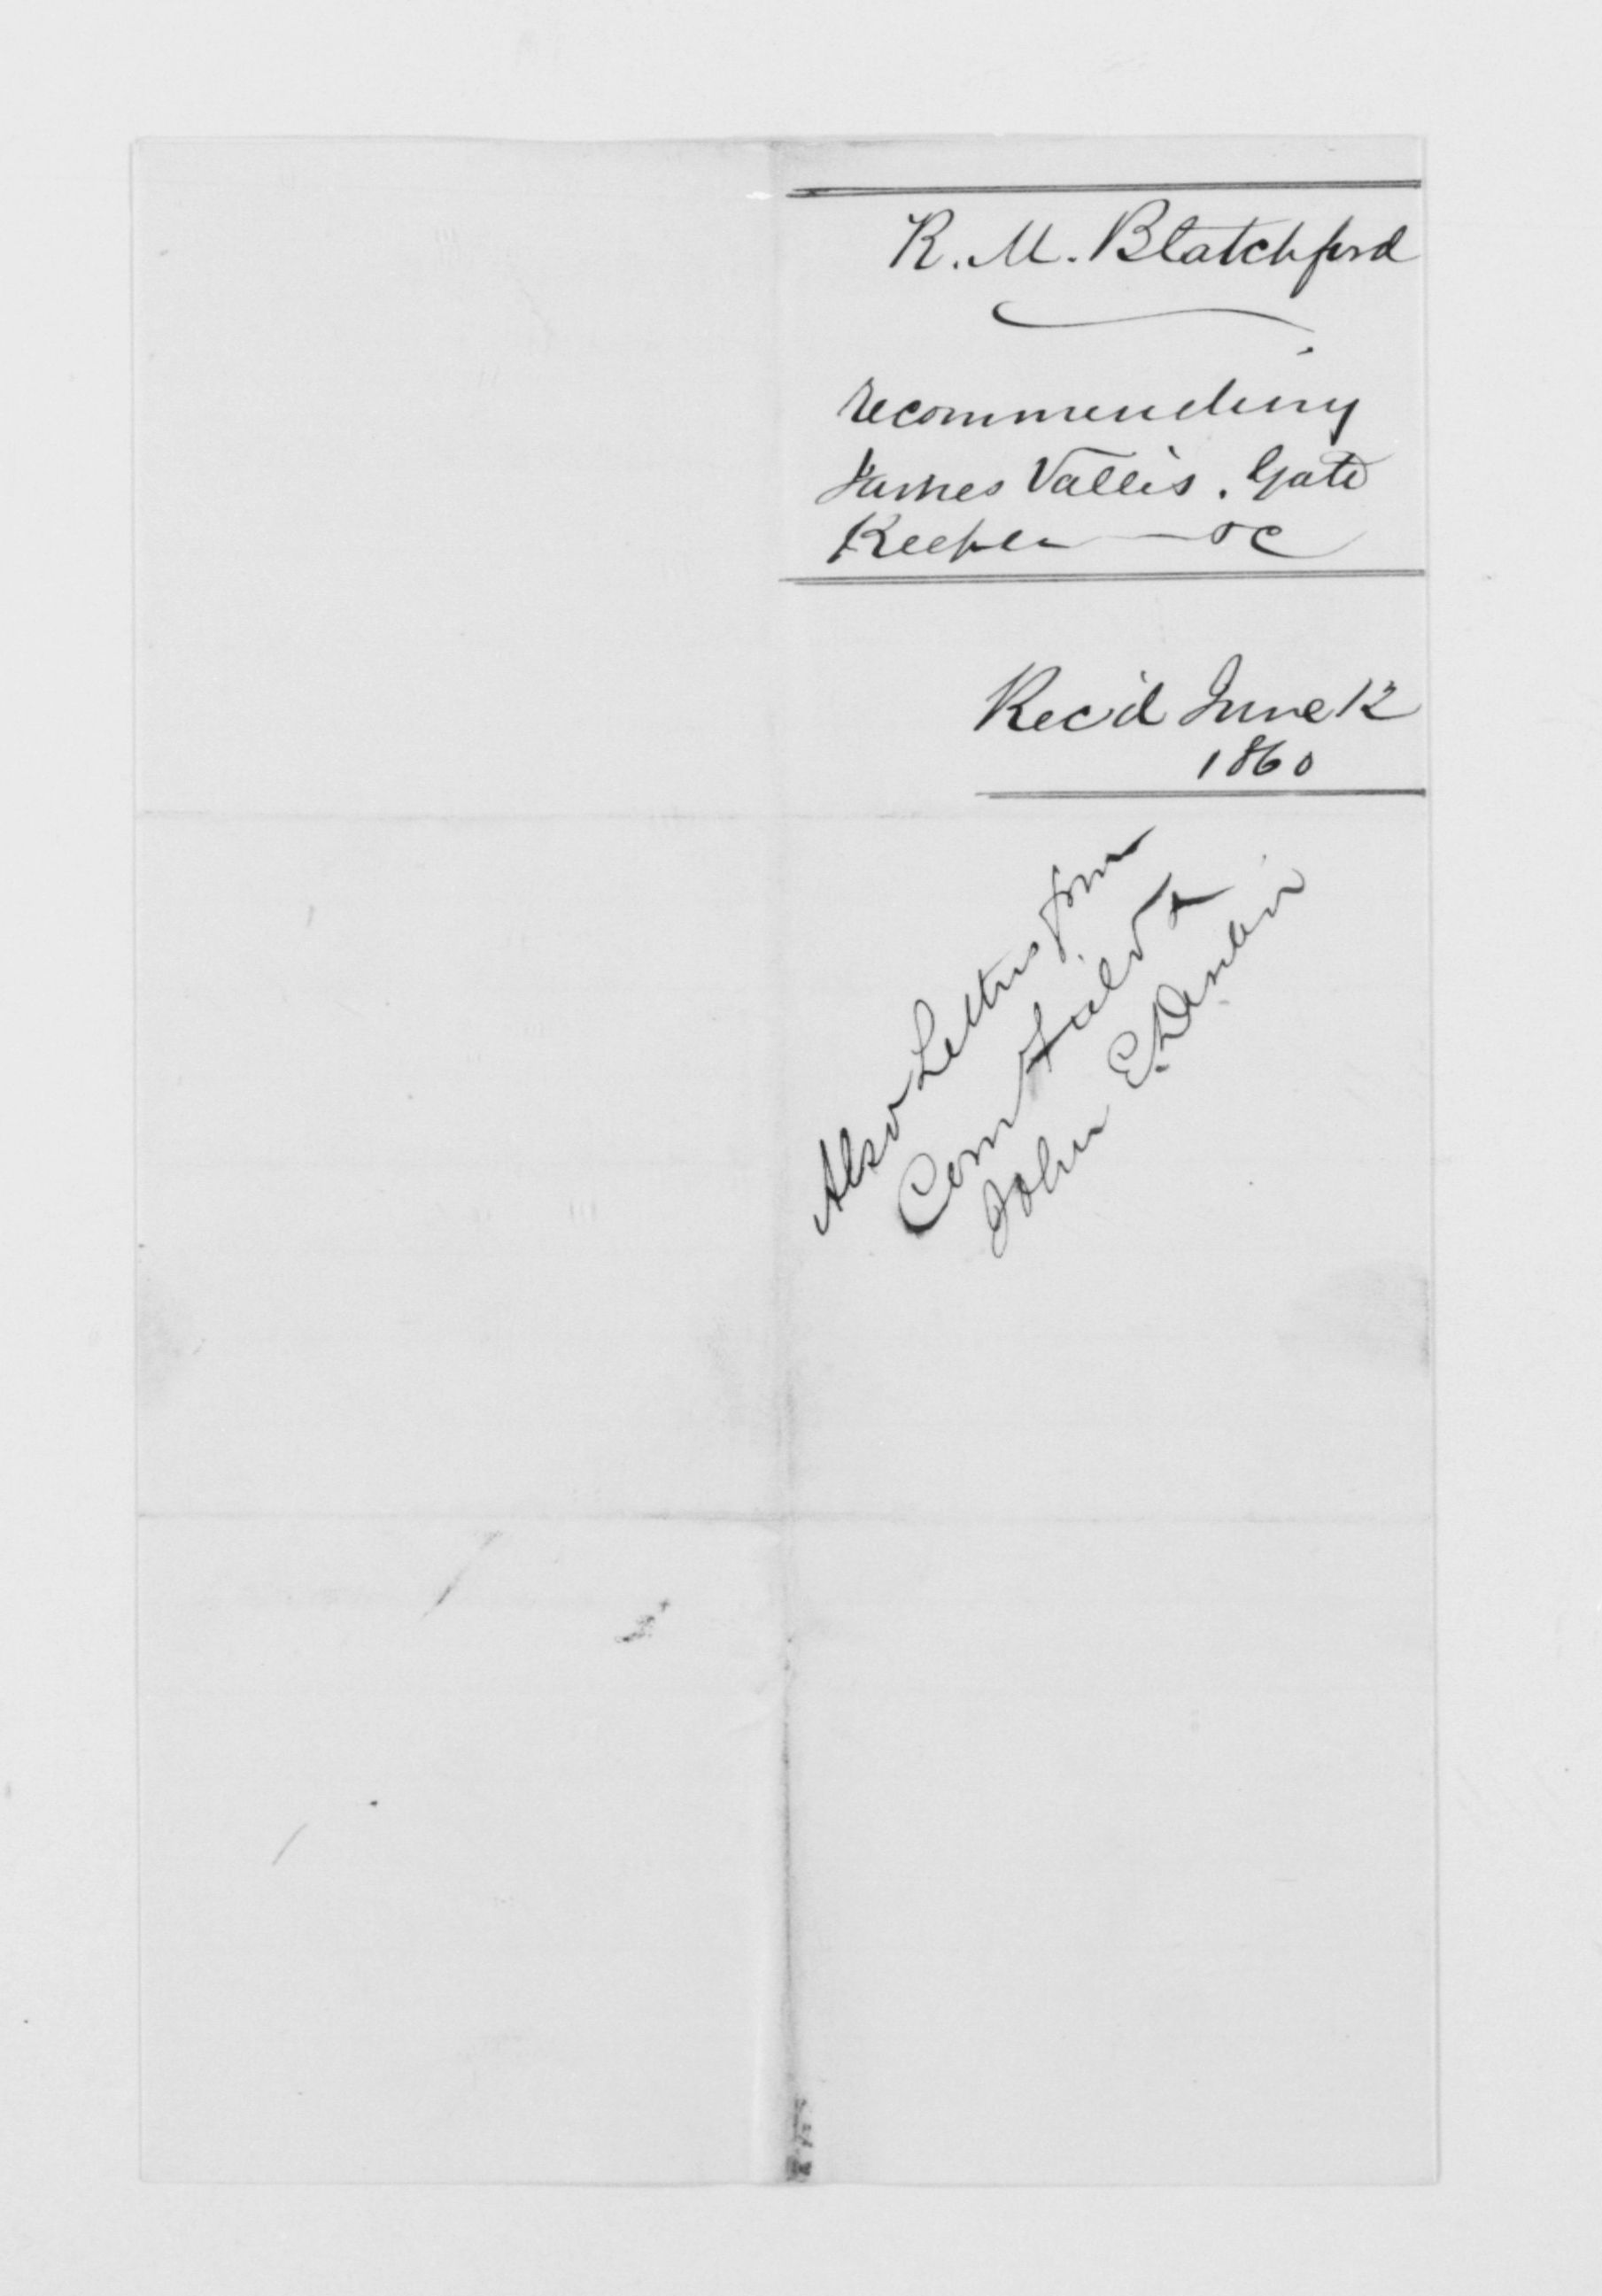 R. M. Blatchford
recommending
James Vallis. Gate
Keeper — &c
Rec'd June 12
1860
Also Letters from
Com Field &
John E. Devlin